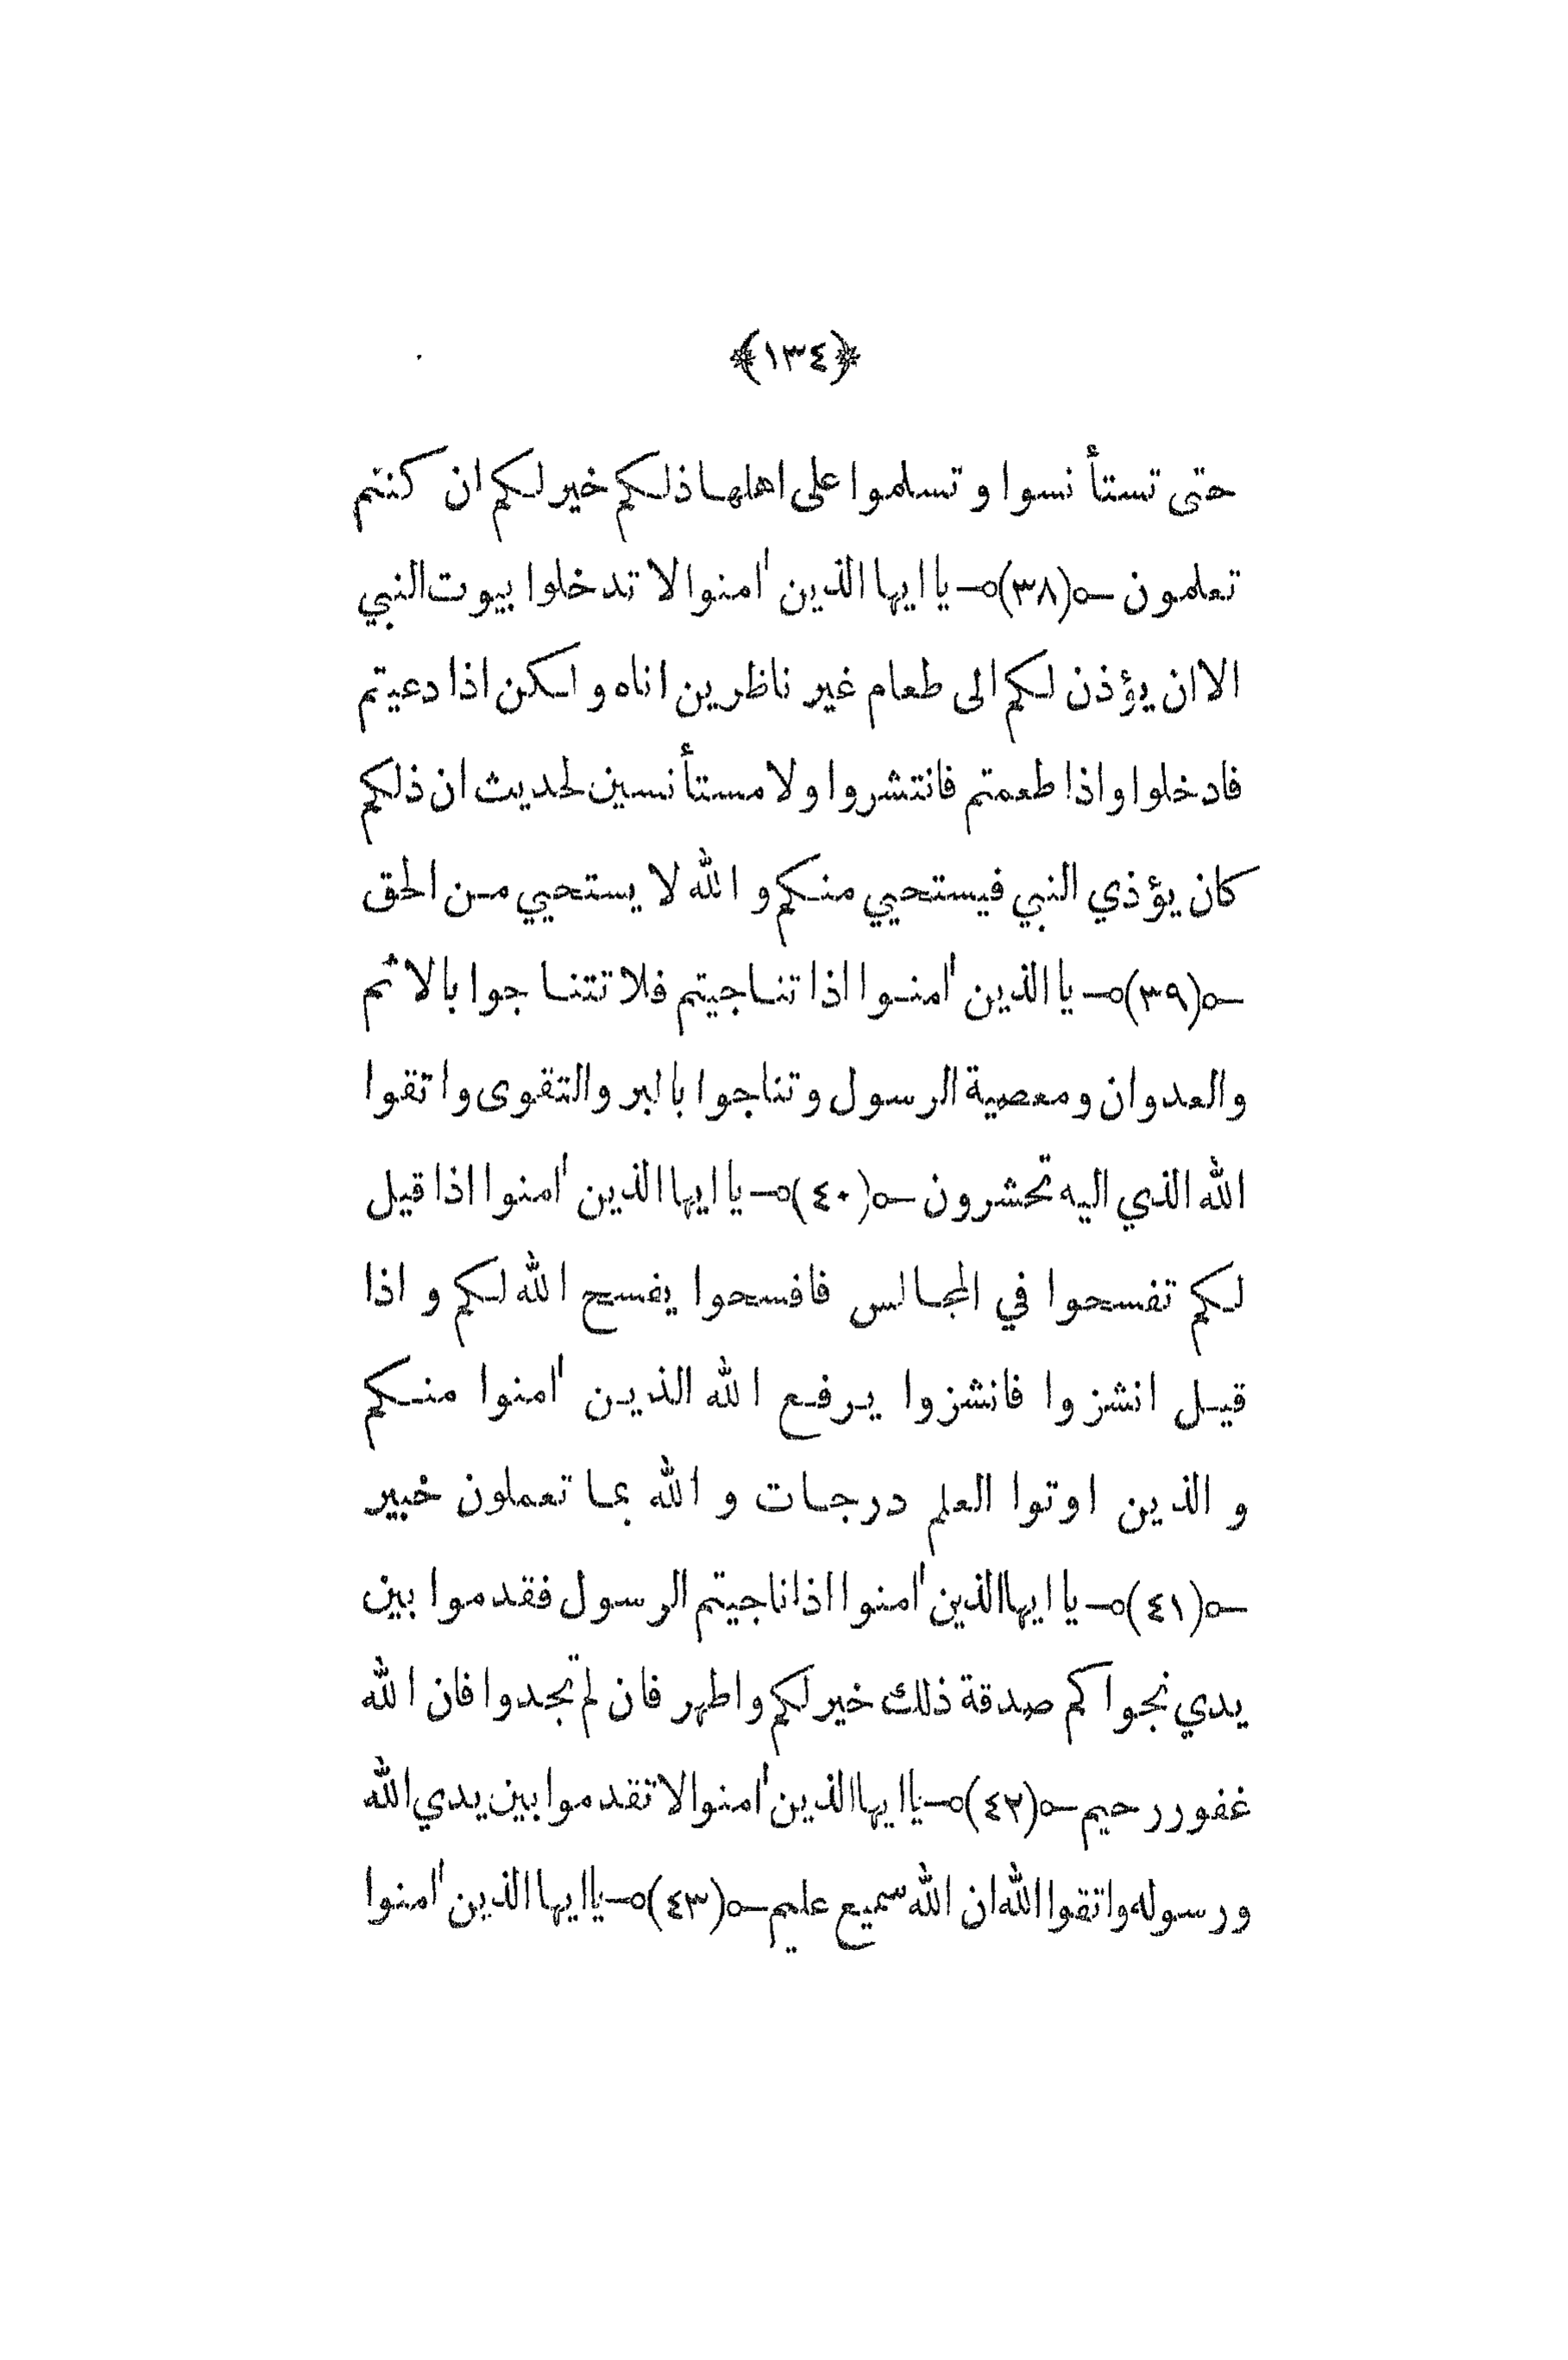 ﴿١٣٤﴾
حتى تستأنسوا و تسلموا على اهلها ذلكم خير لكم ان كنتم
تعلمون -o(٣٨)o- يا ايها الذين اٰمنوا لا تدخلوا بيوت النبي
الا ان يؤذن لكم الى طعام غير ناظرين اناه و لكن اذا دعيتم
فادخلوا و اذا طعمتم فانتشروا و لا مستأنسين لحديث ان ذلكم
كان يؤذي النبي فيستحيي منكم و الله لا يستحيي من الحق
-o(٣٩)o- يا الذين اٰمنوا اذا تناجيتم فلا تتناجوا بالاثم
والعدوان و معصية الرسول و تناجوا بالبر والتقوى و اتقوا
الله الذي اليه تحشرون -o(٤٠)o- يا ايها الذين اٰمنوا اذا قيل
لكم تفسحوا في المجالس فافسحوا يفسح الله لكم و اذا
قيل انشزوا فانشزوا يرفع الله الذين اٰمنوا منكم
و الذين اوتوا العلم درجات و الله بما تعملون خبير
-o(٤١)o- يا ايها الذين اٰمنوا اذا ناجيتم الرسول فقدموا بين
يدي نجواكم صدقة ذلك خير لكم و اطهر فان لم تجدوا فان الله
غفور رحيم -o(٤٢)o- يا ايها الذين اٰمنوا لا تقدموا بين يدي الله
و رسوله و اتقوا الله ان الله سميع عليم -o(٤٣)o- يا ايها الذين اٰمنوا